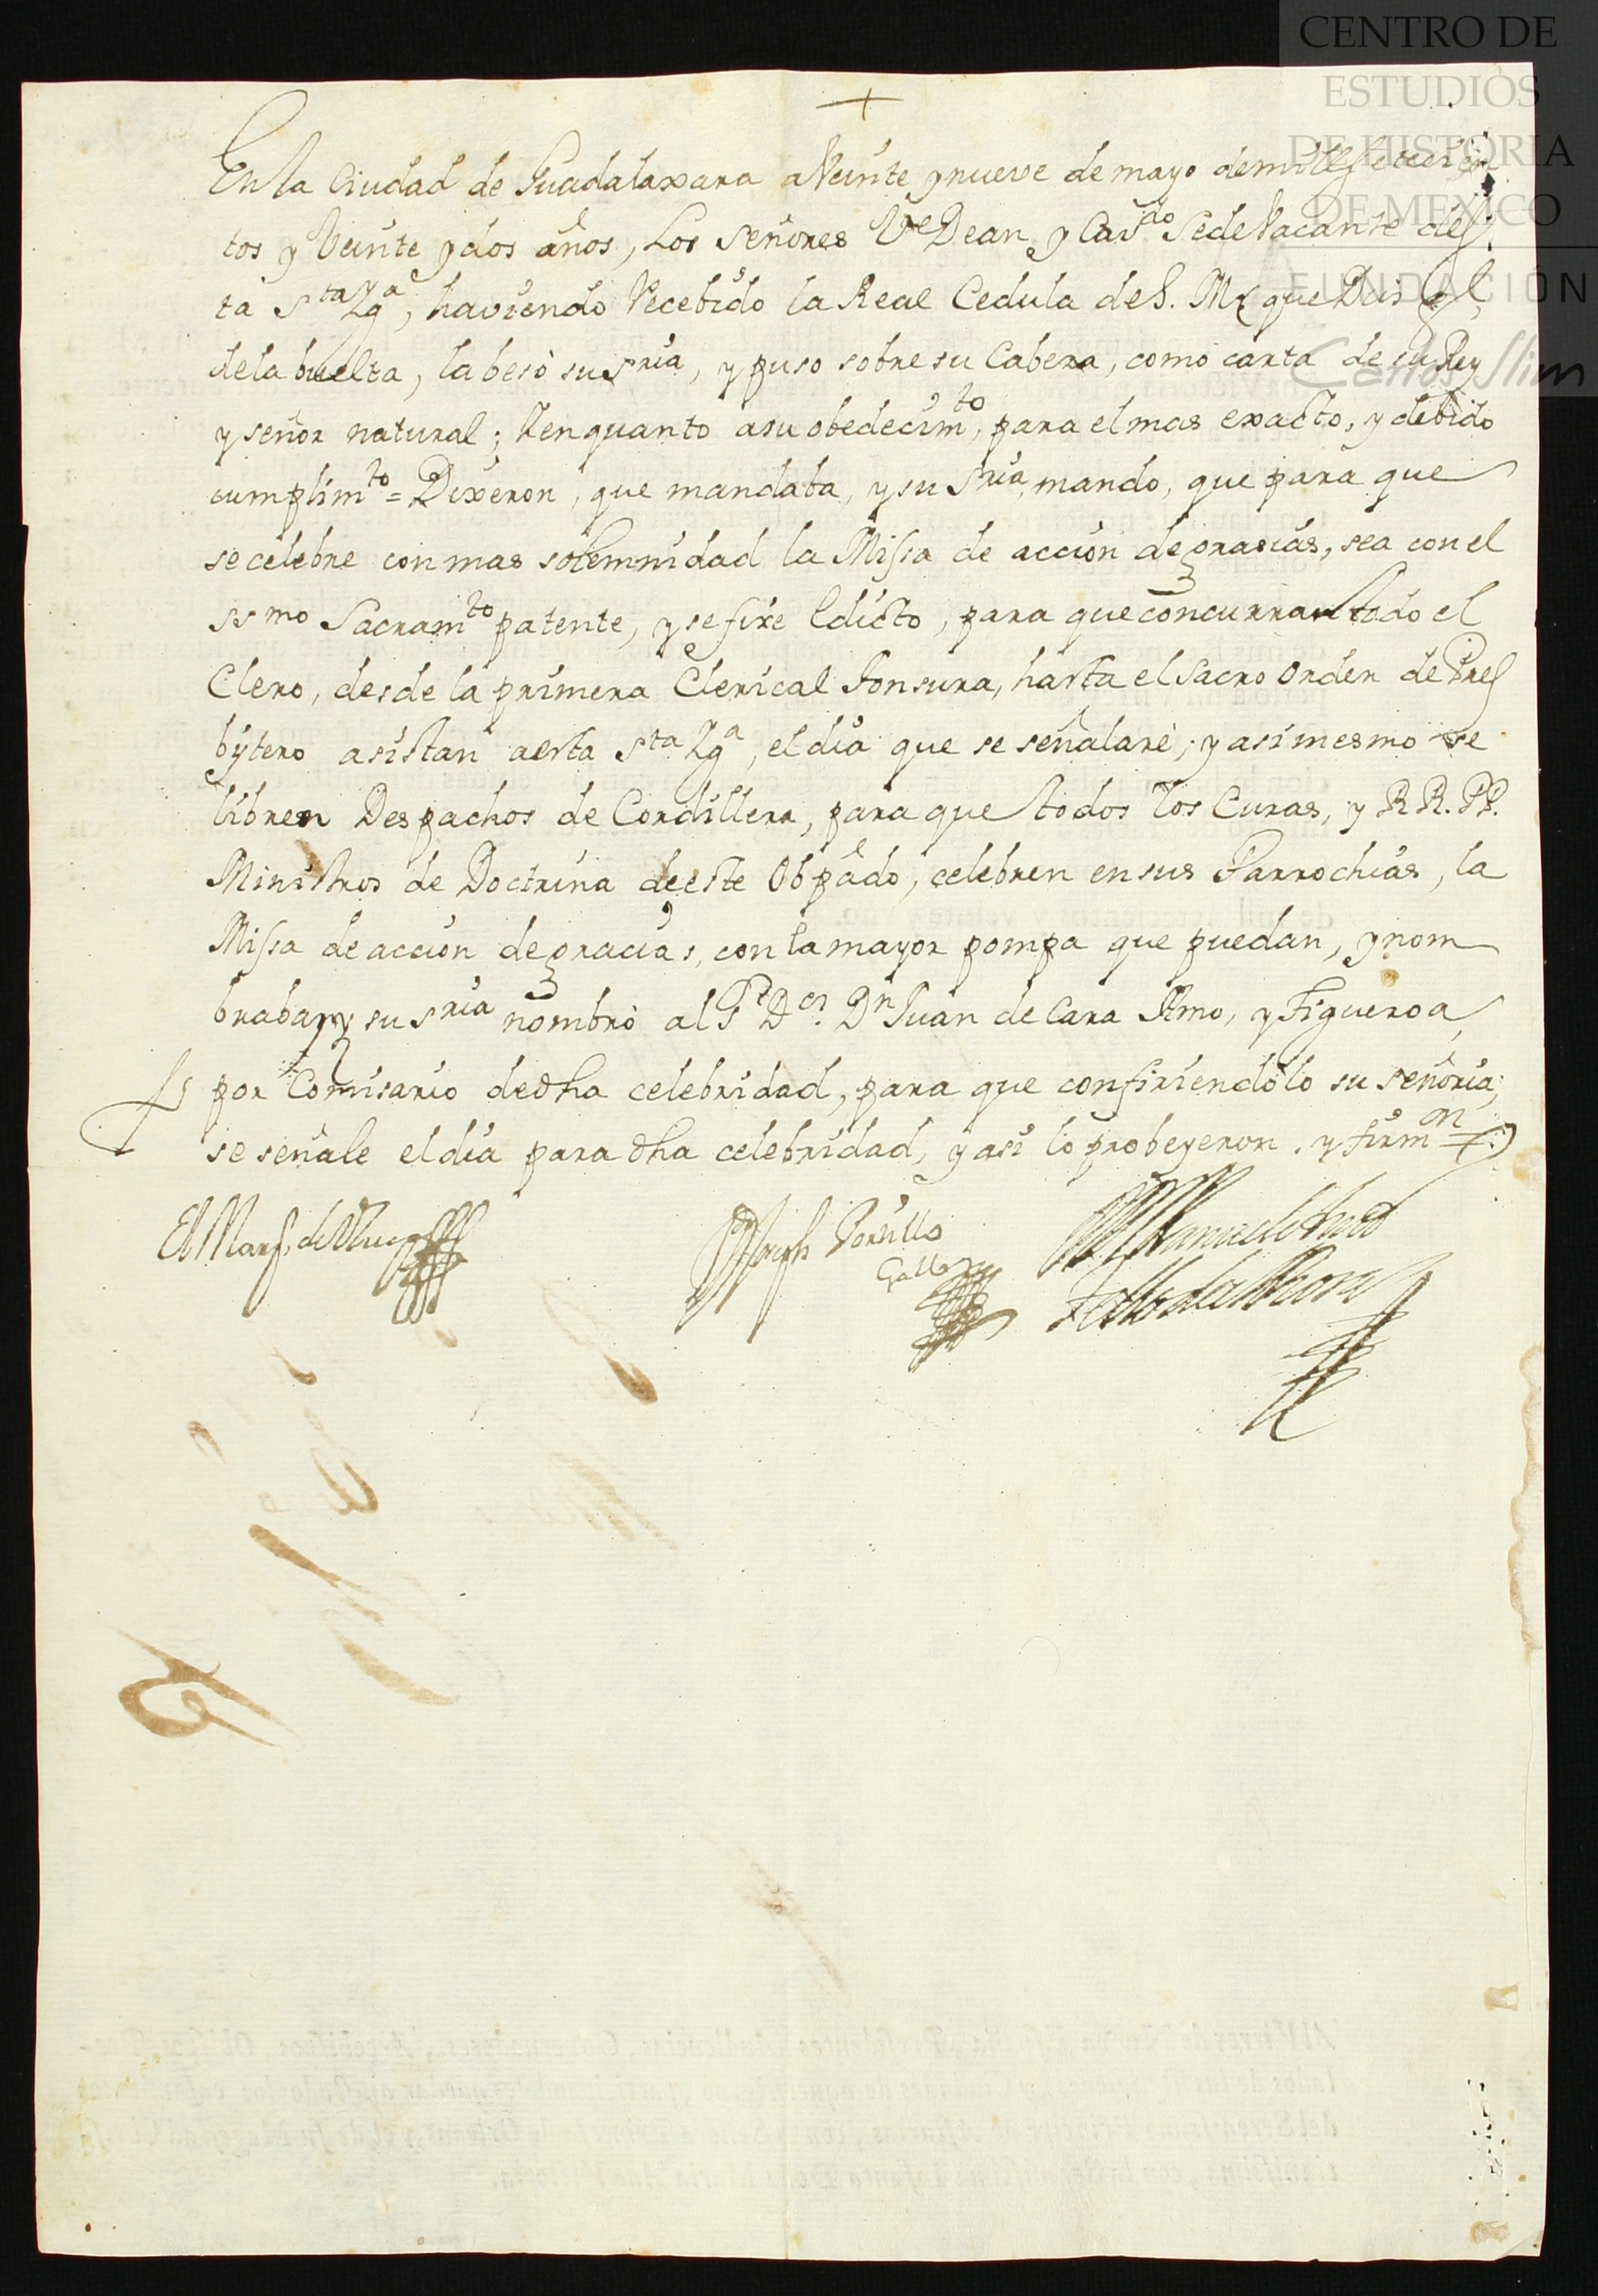 CENTRO DE
ESTUDIOS
DE HISTORIA
DE MÉXICO
FUNDACIÓN
Carlos Slim
+
En la Ciudad de Guadalaxara a Veinte y nueve de mayo de mill setecien
tos y Veinte y dos años, Los señores Ve Dean, y Cavdo Sede Vacante des
ta Sta Yga, haviendo Recebido la Real Cedula de S. M. que Dios
de la buelta, la besò su sria, y puso sobre su Cabeza, como carta de su Rey
y señor natural; Y en quanto a su obedecimto, para el mas exacto, y debido
cumplimto = Dixeron, que mandaba, y su sria mando, que para que
se celebre con mas solemnidad la Missa de acción de grasias, sea con el
ssmo Sacramto patente, y se fixe Edicto, para que concurran todo el
Clero, desde la primera Clerical Tonsura, hasta el Sacro Orden de Pres
bytero asistan a esta Sta Yga, el dia que se señalare; y asi mesmo se
libren Despachos de Cordillera, para que todos los Curas, y RR. PP.
Ministros de Doctrina de este Obpado, celebren en sus Parrochias, la
Missa de acción de gracias, con la mayor pompa que puedan, y nom
braba, y su sria nombrò al Sr Dor Dn Juan de Cara Amo, y Figueroa,
por Comisario de dha celebridad, para que confiriendolo su señoria,
se señale el dia para dha celebridad, y asi lo probeyeron, y firmon
El Marqs de
Joseph Portillo
Gallo